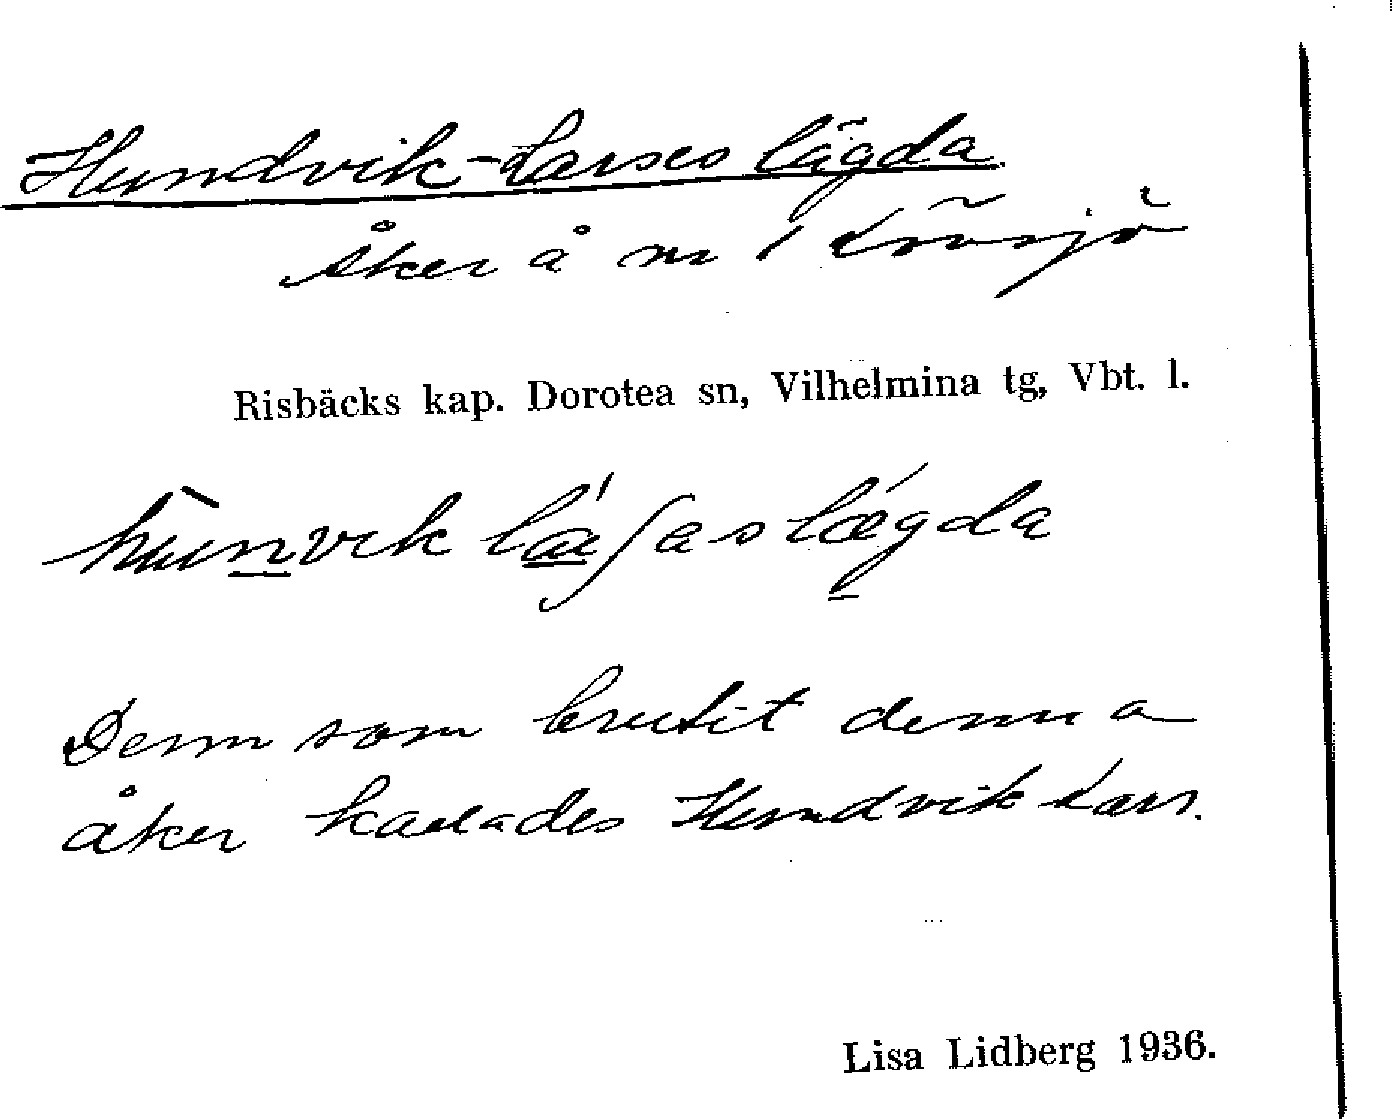 Hundvik-Larses lägda
Åker å nr 1 Lövsjö
Risbäcks kap. Dorotea sn, Vilhelmina tg, Vbt. l.
Denn som brutit denna
åker kallades Hundvik Lars.
Lisa Lidberg 1936.